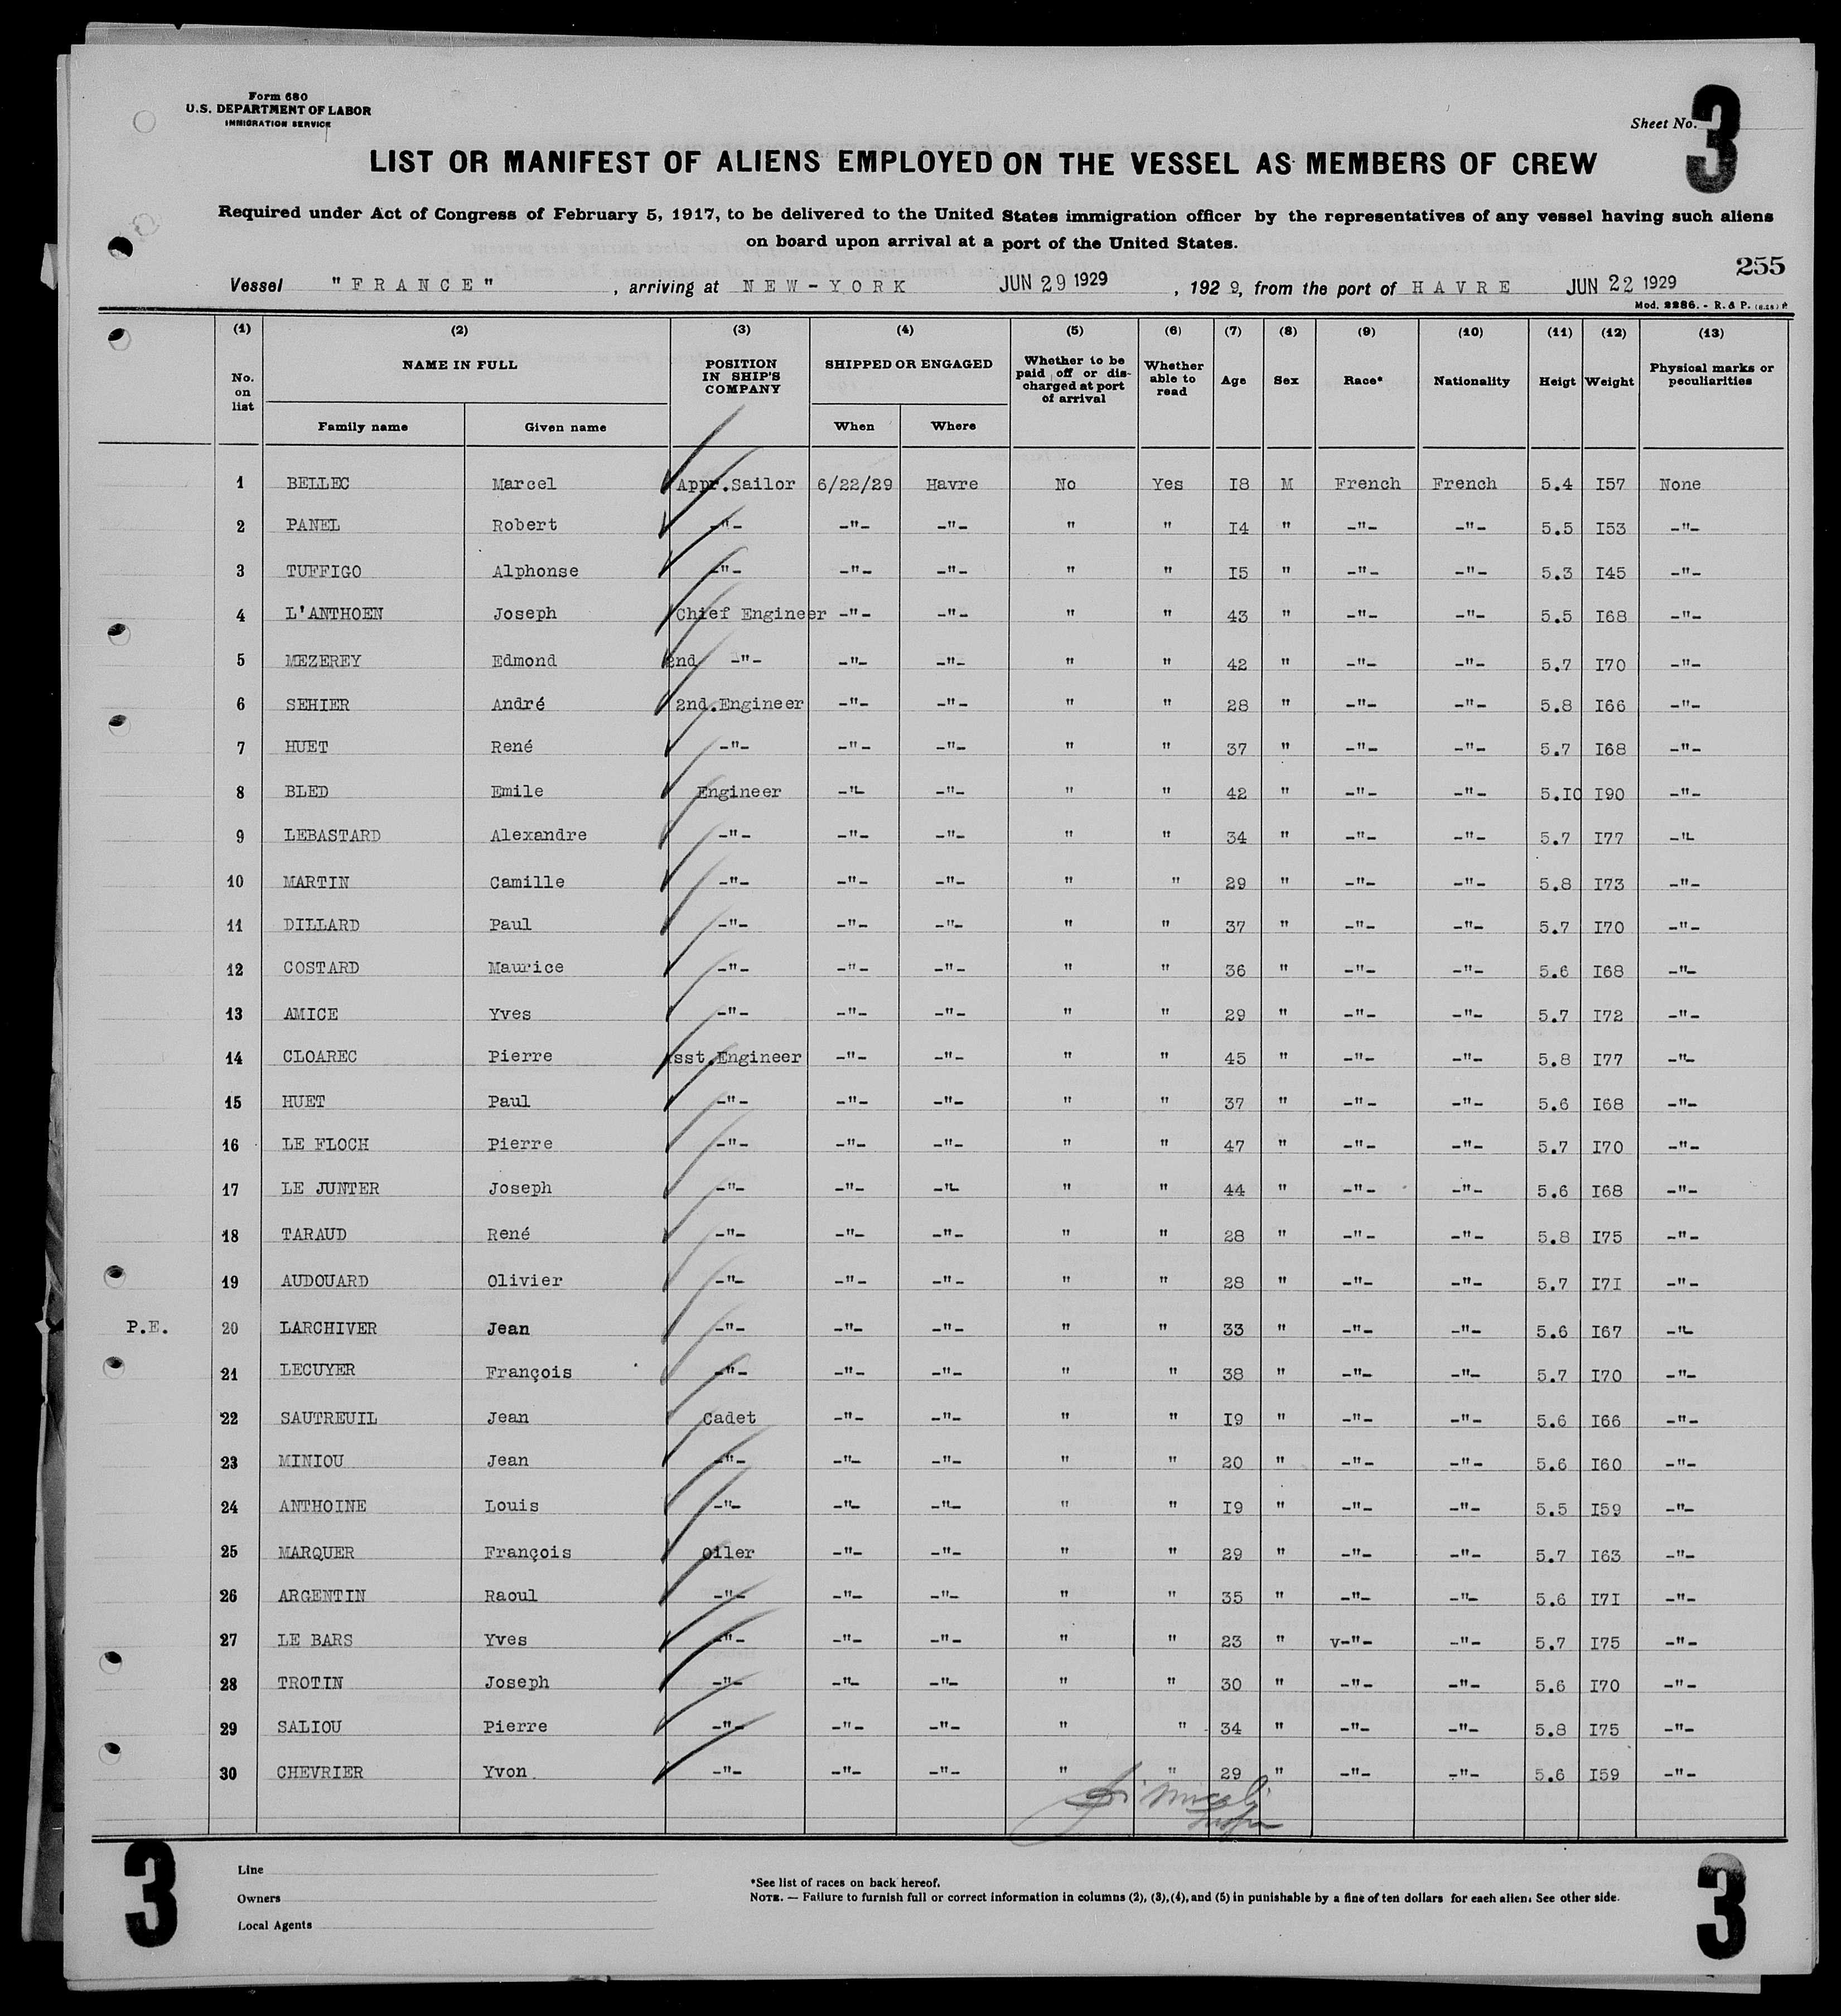 Form 680
U.S. DEPARTMENT OF LABOR
IMMIGRATION SERVICE
Sheet No. 3
LIST OR MANIFEST OF ALIENS EMPLOYED ON THE VESSEL AS MEMBERS OF CREW
Required under Act of Congress of February 5, 1917, to be delivered to the United States immigration officer by the representatives of any vessel having such aliens
on board upon arrival at a port of the United States.
255
Vessel "FRANCE", arriving at NEW-YORK JUN 29 1929, 1929, from the port of HAVRE JUN 22 1929
Mod. 2286. - R. & P.
(1) (2) (3) (4) (5) (6) (7) (8) (9) (10) (11) (12) (13)
No. on list NAME IN FULL Family name Given name POSITION IN SHIP'S COMPANY SHIPPED OR ENGAGED When Where Whether to be paid off or discharged at port of arrival Whether able to read Age Sex Race* Nationality Heigt Weight Physical marks or peculiarities
1 BELLEC Marcel Appr.Sailor 6/22/29 Havre No Yes I8 M French French 5.4 I57 None
2 PANEL Robert -"- -"- -"- " " I4 " -"- -"- 5.5 I53 -"-
3 TUFFIGO Alphonse -"- -"- -"- " " I5 " -"- -"- 5.3 I45 -"-
4 L'ANTHOEN Joseph Chief Engineer -"- -"- " " 43 " -"- -"- 5.5 I68 -"-
5 MEZEREY Edmond 2nd -"- -"- -"- " " 42 " -"- -"- 5.7 I70 -"-
6 SEHIER André 2nd.Engineer -"- -"- " " 28 " -"- -"- 5.8 I66 -"-
7 HUET René -"- -"- -"- " " 37 " -"- -"- 5.7 I68 -"-
8 BLED Emile Engineer -"- -"- " " 42 " -"- -"- 5.I0 I90 -"-
9 LEBASTARD Alexandre -"- -"- -"- " " 34 " -"- -"- 5.7 I77 -"-
10 MARTIN Camille -"- -"- -"- " " 29 " -"- -"- 5.8 I73 -"-
11 DILLARD Paul -"- -"- -"- " " 37 " -"- -"- 5.7 I70 -"-
12 COSTARD Maurice -"- -"- -"- " " 36 " -"- -"- 5.6 I68 -"-
13 AMICE Yves -"- -"- -"- " " 29 " -"- -"- 5.7 I72 -"-
14 CLOAREC Pierre Asst.Engineer -"- -"- " " 45 " -"- -"- 5.8 I77 -"-
15 HUET Paul -"- -"- -"- " " 37 " -"- -"- 5.6 I68 -"-
16 LE FLOCH Pierre -"- -"- -"- " " 47 " -"- -"- 5.7 I70 -"-
17 LE JUNTER Joseph -"- -"- -"- " " 44 " -"- -"- 5.6 I68 -"-
18 TARAUD René -"- -"- -"- " " 28 " -"- -"- 5.8 I75 -"-
19 AUDOUARD Olivier -"- -"- -"- " " 28 " -"- -"- 5.7 I7I -"-
P.E. 20 LARCHIVER Jean -"- -"- -"- " " 33 " -"- -"- 5.6 I67 -"-
21 LECUYER François -"- -"- -"- " " 38 " -"- -"- 5.7 I70 -"-
22 SAUTREUIL Jean Cadet -"- -"- " " I9 " -"- -"- 5.6 I66 -"-
23 MINIOU Jean -"- -"- -"- " " 20 " -"- -"- 5.6 I60 -"-
24 ANTHOINE Louis -"- -"- -"- " " I9 " -"- -"- 5.5 I59 -"-
25 MARQUER François Oiler -"- -"- " " 29 " -"- -"- 5.7 I63 -"-
26 ARGENTIN Raoul -"- -"- -"- " " 35 " -"- -"- 5.6 I7I -"-
27 LE BARS Yves -"- -"- -"- " " 23 " v-"- -"- 5.7 I75 -"-
28 TROTIN Joseph -"- -"- -"- " " 30 " -"- -"- 5.6 I70 -"-
29 SALIOU Pierre -"- -"- -"- " " 34 " -"- -"- 5.8 I75 -"-
30 CHEVRIER Yvon -"- -"- -"- " " 29 " -"- -"- 5.6 I59 -"-
3
Line
Owners
Local Agents
*See list of races on back hereof.
NOTE. — Failure to furnish full or correct information in columns (2), (3), (4), and (5) in punishable by a fine of ten dollars for each alien. See other side.
3